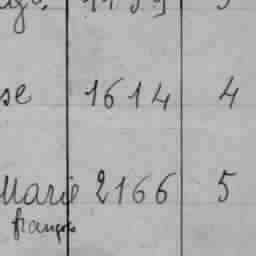 se 1614 4
Marie 2166 5
françse